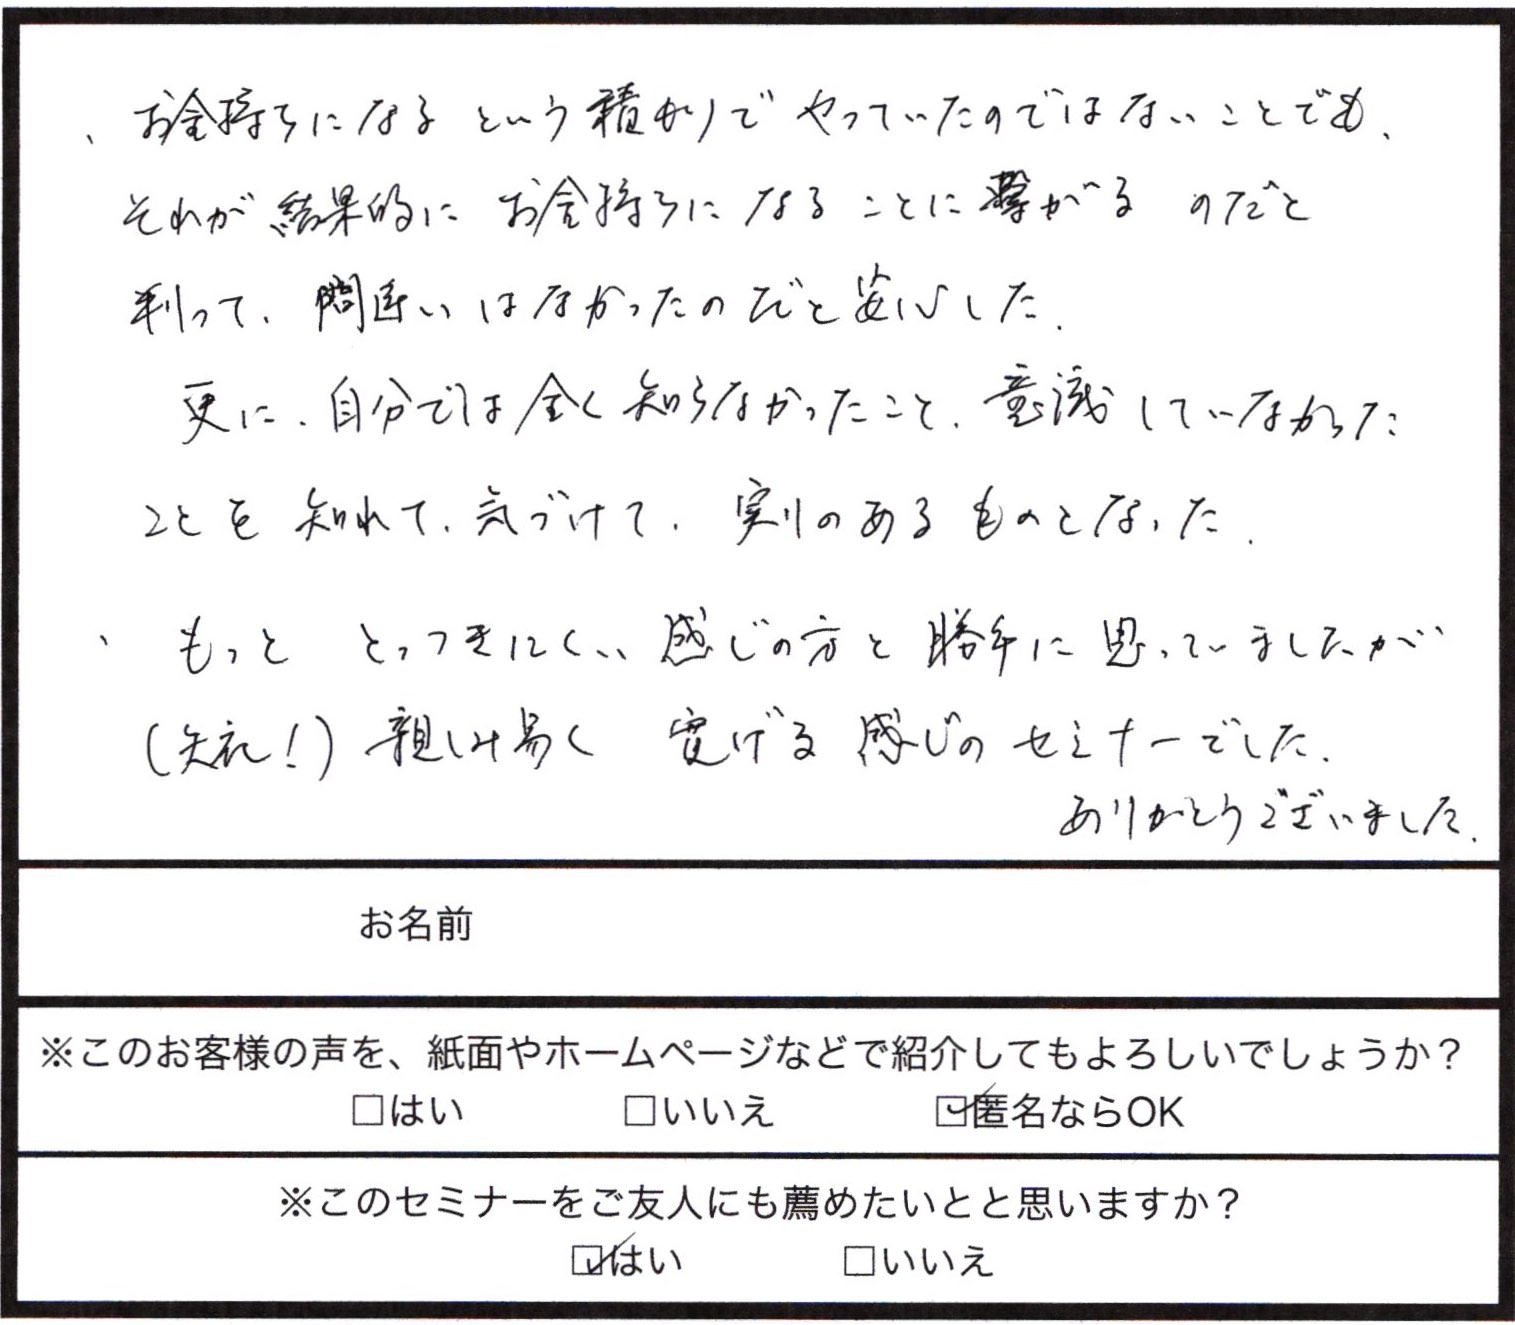 、お金持ちになるという積りでやっていたのではないことでも、
それが結果的にお金持ちになることに繋がるのだと
判って、間違いはなかったのだと安心した。
更に、自分では全く知らなかったこと、意識していなかった
ことを知れて、気づけて、実りのあるものとなった。
、もっと とっつきにくい感じの方と勝手に思っていましたが
(失礼!)親しみ易く 寛げる感じのセミナーでした。
ありがとうございました。
お名前
※このお客様の声を、紙面やホームページなどで紹介してもよろしいでしょうか?
□はい □いいえ ☑匿名ならOK
※このセミナーをご友人にも薦めたいとと思いますか?
☑はい □いいえ